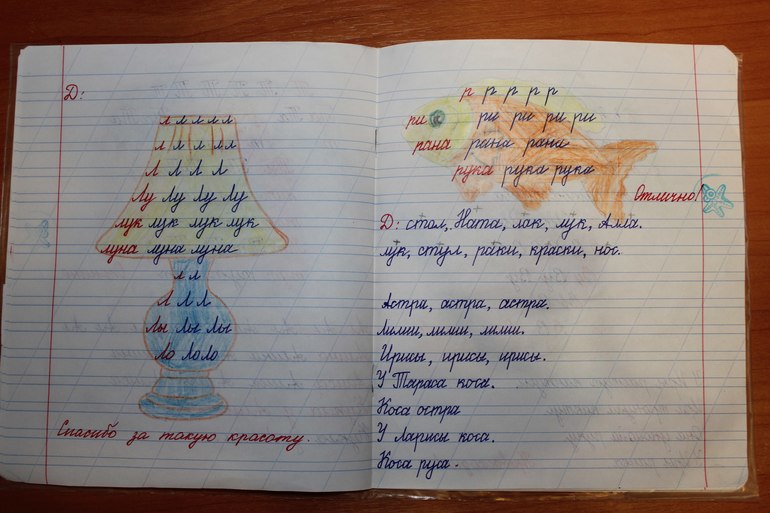 Д:
л л л л л
л л л л л
Л Л Л Л
Лу Лу Лу Лу
лук лук лук лук
луна луна луна
л л
Л Л Л
Лы Лы Лы
Ло Ло Ло
Спасибо за такую красоту.
р р р р р
ри ри ри ри ри
рана рана рана
рука рука рука
Отлично!
Д: стол, Ната, лак, лук, Алла.
лук, стул, раки, краски, нос.
Астра, астра, астра.
Лилии, лилии, лилии.
Ирисы, ирисы, ирисы.
У Тараса коса.
Коса остра
У Ларисы коса.
Коса руса.